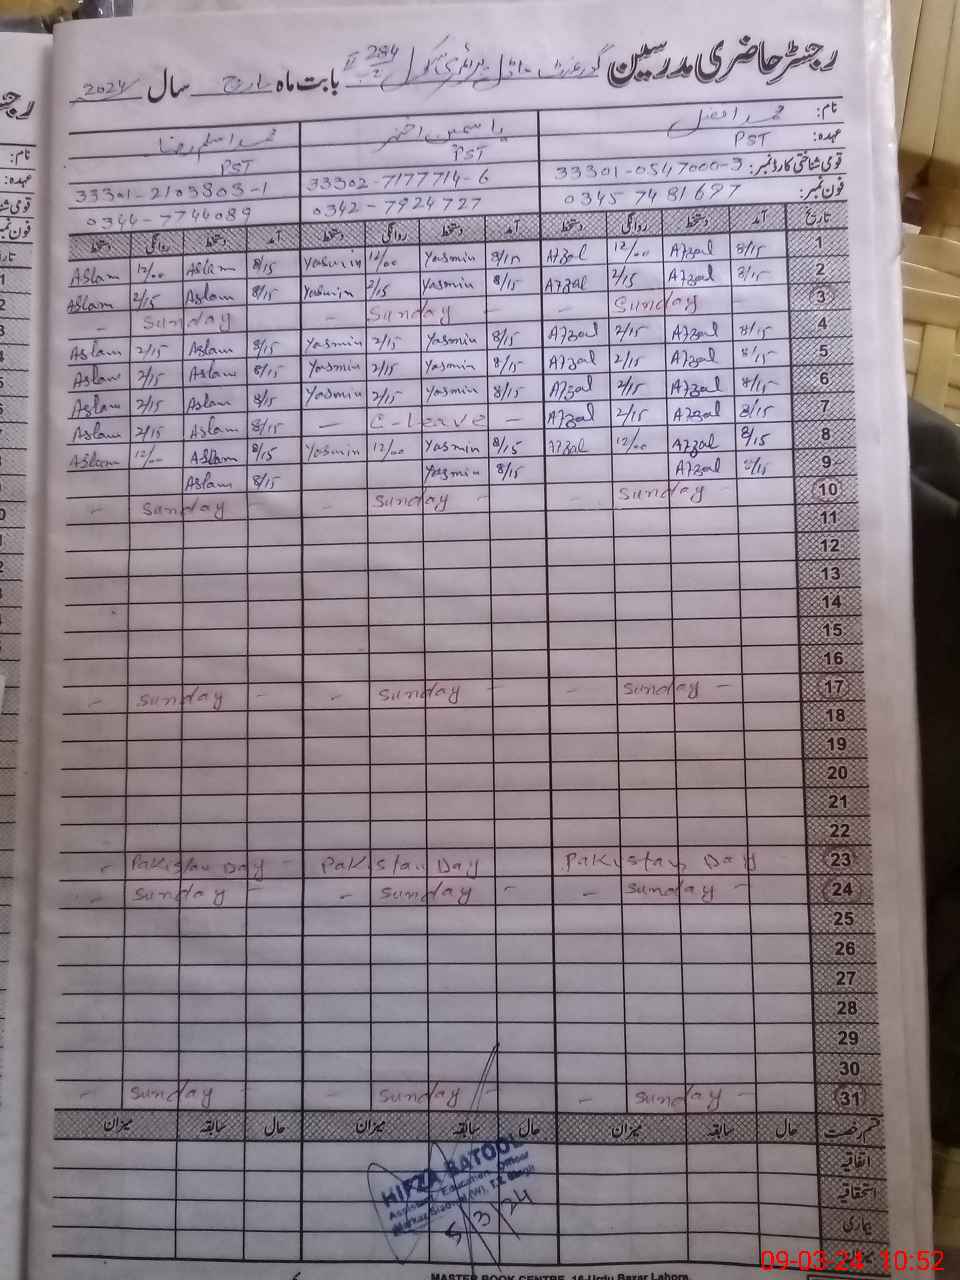 رجسٹر حاضری مدرسین گورنمنٹ ماڈل پرائمری سکول 284 بابت ماہ مارچ سال 2024
نام: محمد افضل یاسمین اختر محمد اسلم رضا
عہدہ: PST PST PST
قومی شناختی کارڈ نمبر: 33301-0547000-3 33302-7177714-6 33301-2103803-1
فون نمبر: 0345 7481697 0342-7924727 0344-7744089
تاریخ آمد دستخط روانگی دستخط آمد دستخط روانگی دستخط آمد دستخط روانگی دستخط
1 8/15 Afzal 12/00 Afzal 8/15 Yasmin 12/00 Yasmin 8/15 Aslam 12/00 Aslam
2 8/15 Afzal 2/15 Afzal 8/15 Yasmin 2/15 Yasmin 8/15 Aslam 2/15 Aslam
3 - Sunday - - Sunday - Sunday -
4 8/15 Afzal 2/15 Afzal 8/15 Yasmin 2/15 Yasmin 8/15 Aslam 2/15 Aslam
5 8/15 Afzal 2/15 Afzal 8/15 Yasmin 2/15 Yasmin 8/15 Aslam 2/15 Aslam
6 8/15 Afzal 2/15 Afzal 8/15 Yasmin 2/15 Yasmin 8/15 Aslam 2/15 Aslam
7 8/15 Afzal 2/15 Afzal - C-Leave - 8/15 Aslam 2/15 Aslam
8 8/15 Afzal 12/00 Afzal 8/15 Yasmin 12/00 Yasmin 8/15 Aslam 12/00 Aslam
9 8/15 Afzal 8/15 Yasmin 8/15 Aslam
10 Sunday - - Sunday - - Sunday -
11
12
13
14
15
16
17 - Sunday - - Sunday - - Sunday -
18
19
20
21
22
23 Pakistan Day Pakistan Day - Pakistan Day -
24 - Sunday - - Sunday - - Sunday -
25
26
27
28
29
30
31 - Sunday - - Sunday - - Sunday -
قسم رخصت حال سابقہ میزان حال سابقہ میزان حال سابقہ میزان
اتفاقیہ
استحقاقیہ
بیماری
HIFZA BATOOL
Assistant Education Officer
5/3/24
MASTER BOOK CENTRE, 16-Urdu Bazar Lahore.
09-03-24 10:52